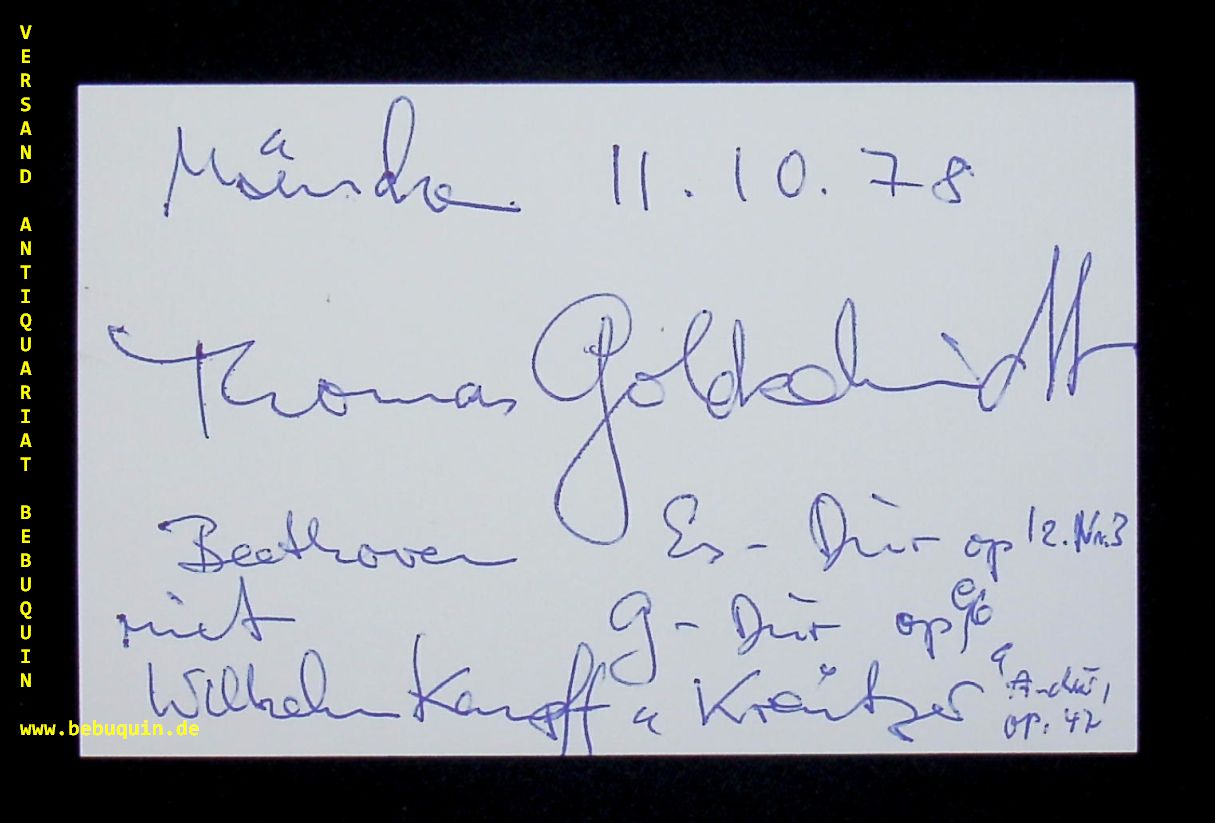 VERSAND ANTIQUARIAT BEBUQUIN
11.10.78
Thomas Goldschmidt
Beethoven Es-Dur op 12.Nr.3
mit G-Dur op 96
Wilhelm Kempff u Kreutzer
op. 47
www.bebuquin.de